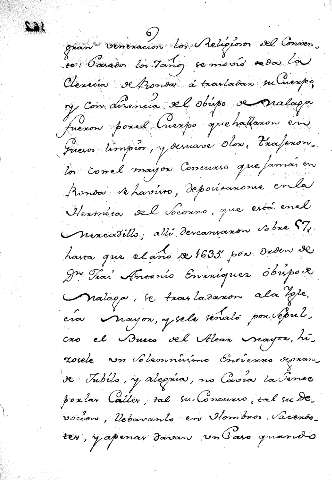 162
6
gran veneracion los Religiosos del Conven-
to: Pasados los 7 años se movió toda la
Clerecia de Ronda à trasladar su Cuerpo,
y con licencia del Obispo de Malaga
fueron por el Cuerpo que hallaron en
Guesos limpios, y de suave olor, Trageron-
los con el mayor Concurso que jamas en
Ronda se ha visto, depositaronse en la
Hermita del Socorro, que està en el
Mercadillo; alli descansaron sobre 57,
hasta que el año de 1635. por orden de
Dn. Frai Antonio Enrriquez Obispo de
Malaga, se trasladaron a la Igle
cia Mayor, y se le señalò por Sepul-
cro el Hueco del Altar Mayor, hi-
zosele un Solemnissimo Entierro de gran-
de Jubilo, y alegria, no Cavia la Gente
por las Calles, tal su Concurso, tal su de-
vocion, llebavanlo en Hombros Sacerdo-
tes, y apenas davan un Paso quando